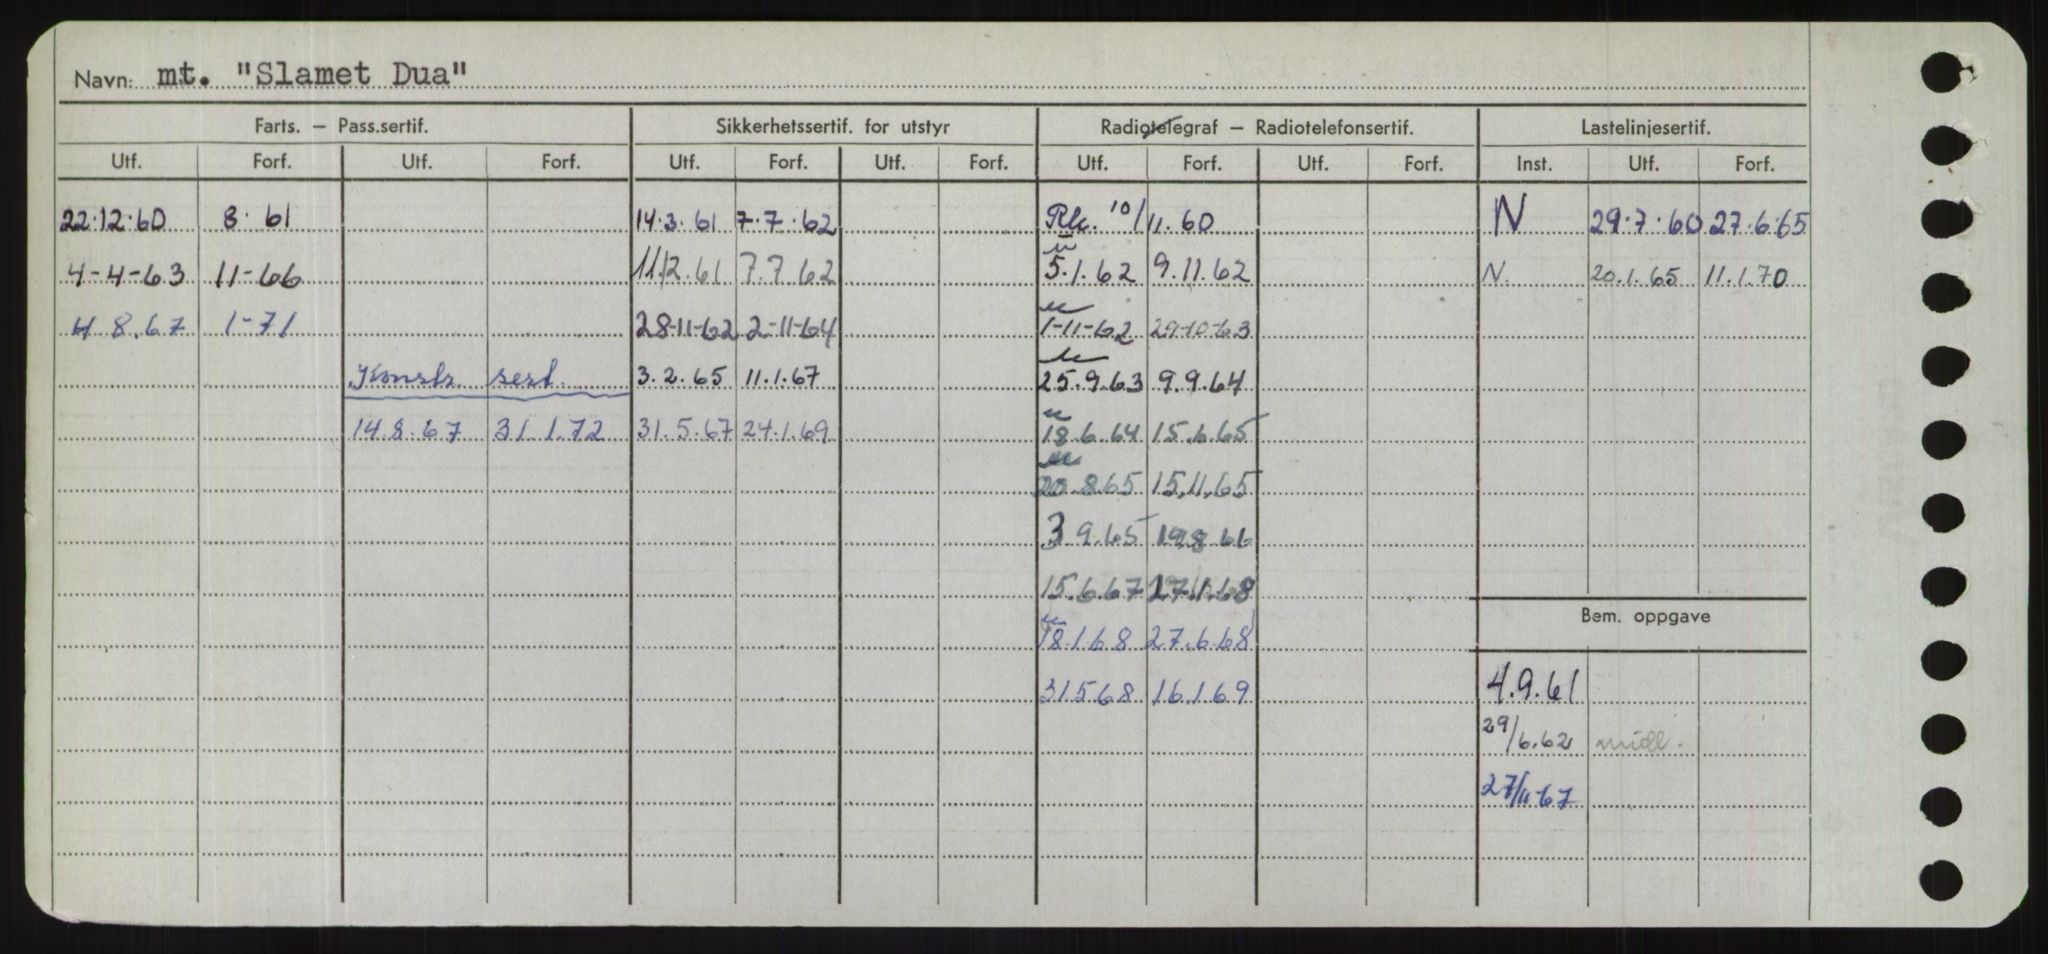 Navn: mt. "Slamet Dua"
Farts. – Pass.sertif. Sikkerhetssertif. for utstyr Radiotelegraf – Radiotelefonsertif. Lastelinjesertif.
Utf. Forf. Utf. Forf. Utf. Forf. Utf. Forf. Utf. Forf. Utf. Forf. Inst. Utf. Forf.
22.12.60 8. 61 14.3.61 7.7.62 10/11.60 N 29.7.60 27.6.65
4-4-63 11-66 11.12.61 7.7.62 5.1.62 9.11.62 N. 20.1.65 11.1.70
4.8.67 1-71 28-11-62 2-11-64 1-11-62 29-10-63
Konstr. sert. 3.2.65 11.1.67 25.9.63 9.9.64
14.8.67 31.1.72 31.5.67 24.1.69 18.6.64 15.6.65
20.8.65 15.11.65
3.9.65 19.8.66
15.6.67 27.1.68
Bem. oppgave
18.1.68 27.6.68
31.5.68 16.1.69 4.9.61
29/6.62 midl.
27/11-67